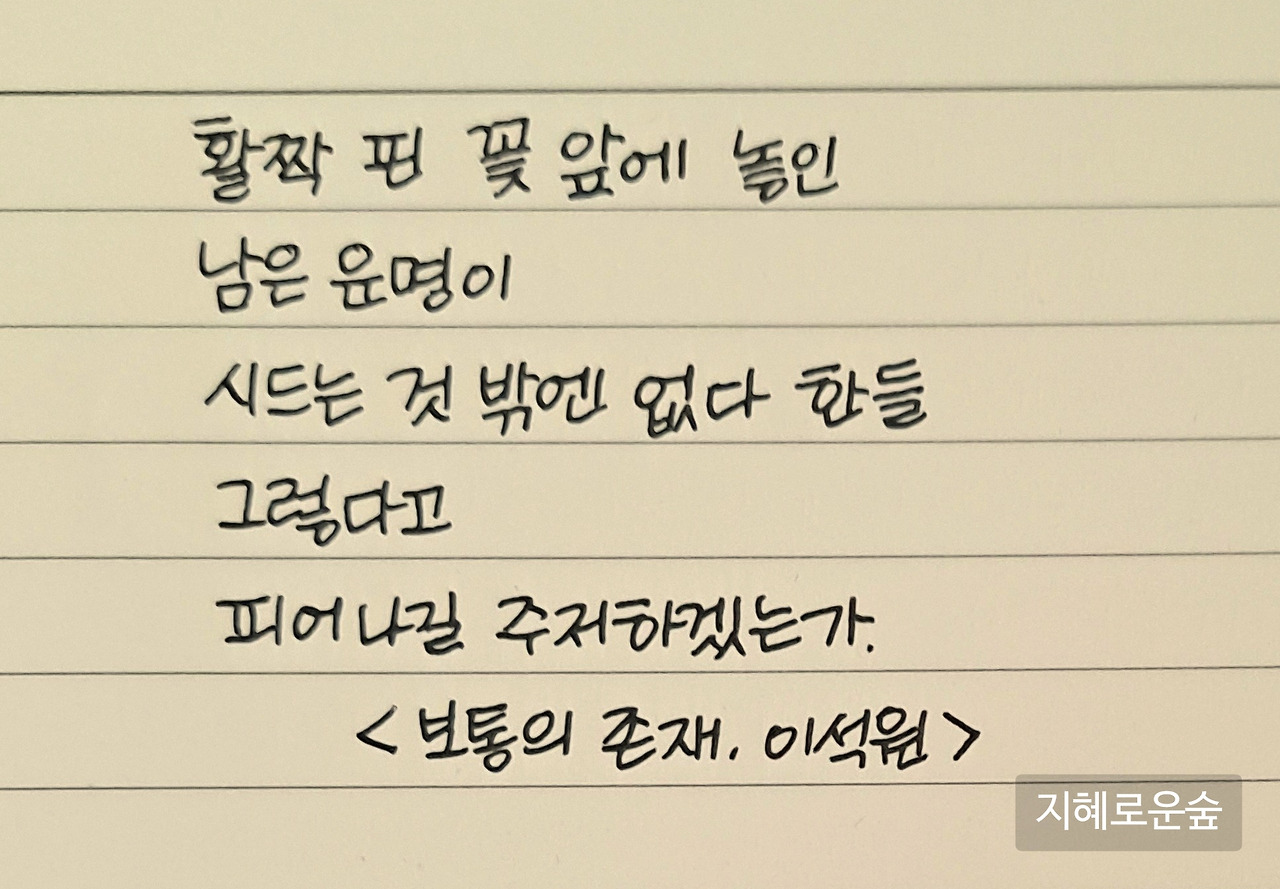 활짝 핀 꽃 앞에 놓인
남은 운명이
시드는 것 밖엔 없다 한들
그렇다고
피어나길 주저하겠는가.
<보통의 존재. 이석원>
지혜로운숲